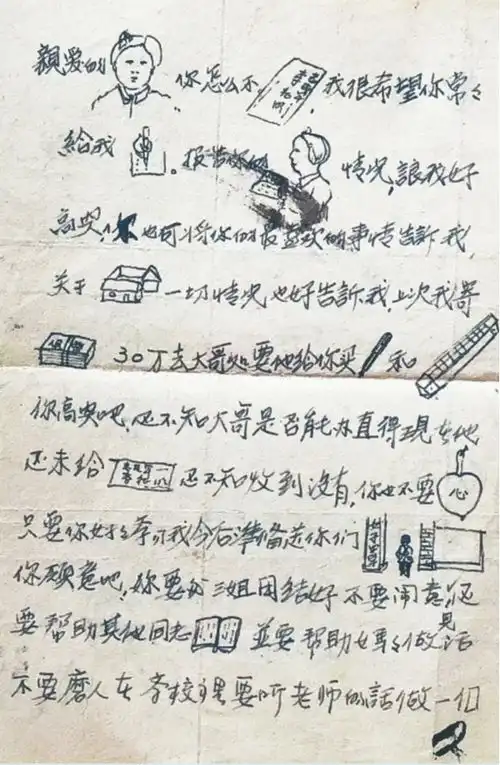 親爱的 你怎么不 我很希望你常々
給我 报告你的 情况,讓我好
高兴,你也可将你的最喜欢的事情告訴我,
关于 一切情况也好告訴我,上次我寄
30万去大哥処要他給你买 和
你高兴吧,还不知大哥是否能办直得現在他
还未給 还不知收到没有,你也不要 心
只要你好好学习我今后準备送你们
你願意吧,你要和三姐团结好不要闹意见
还要帮助其他同志 並要帮助女事々做活
不要磨人在学校里要听老师的話做一个